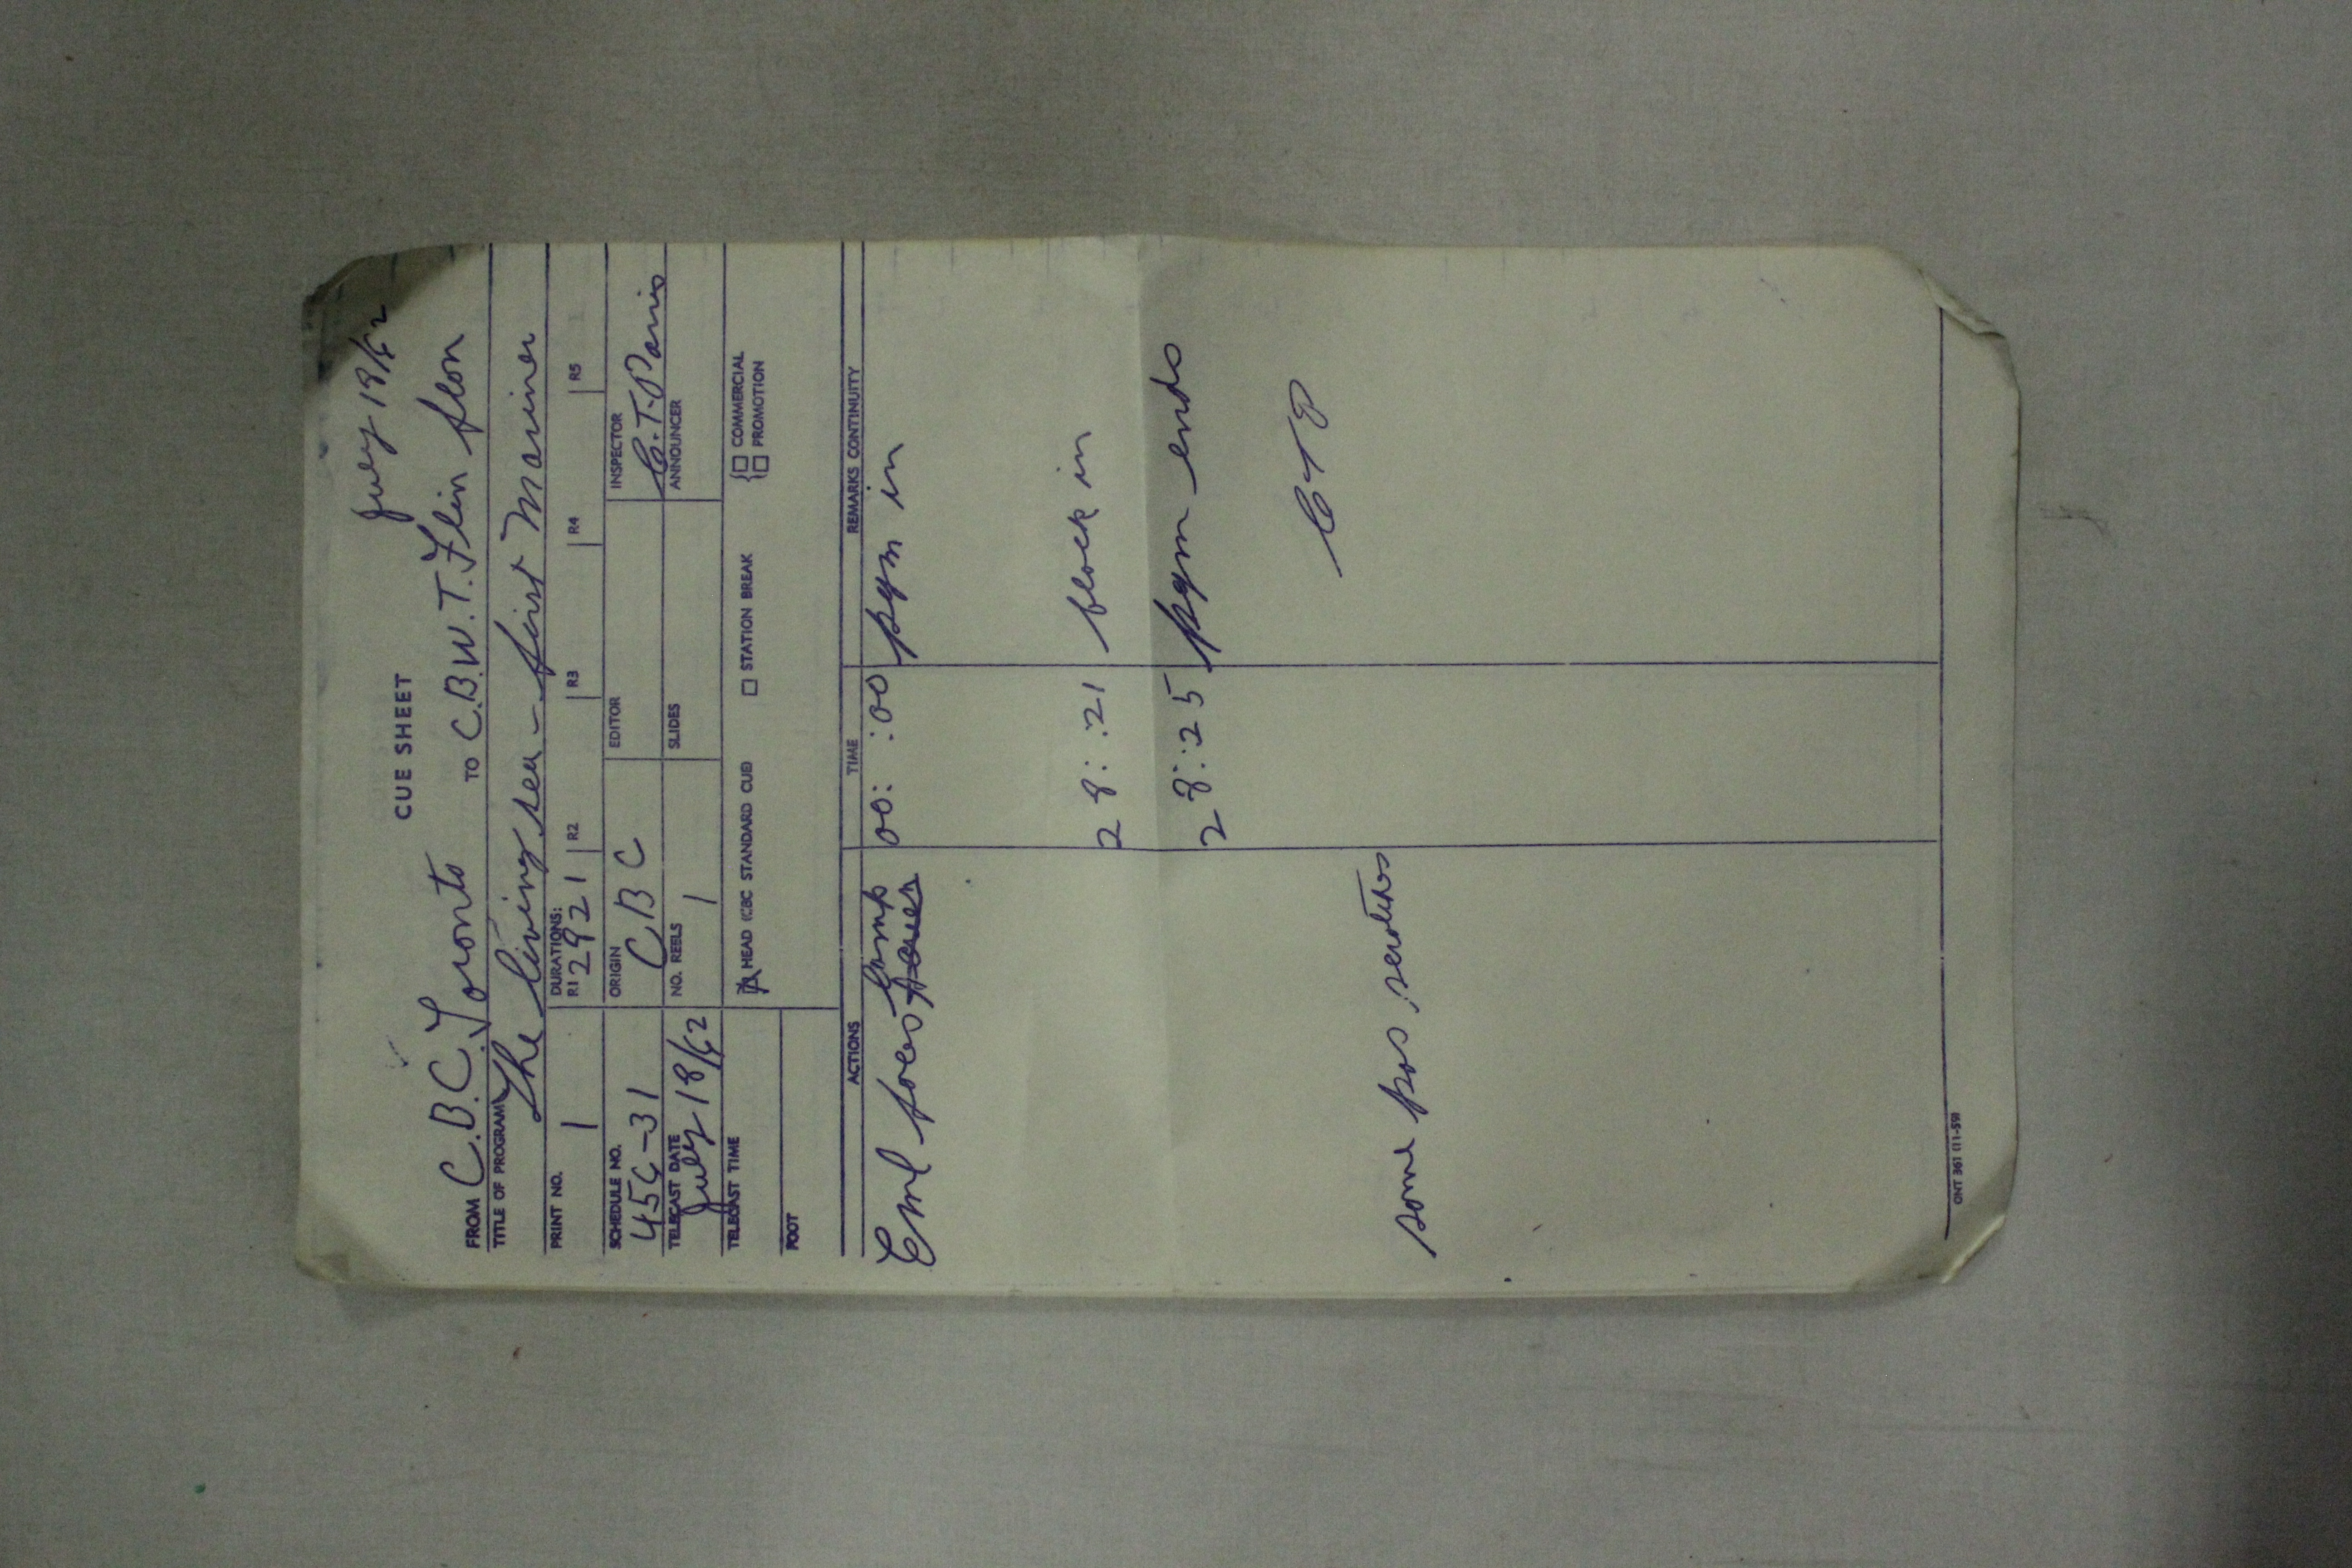 July 18/62
CUE SHEET
FROM C.B.C. Toronto TO C.B.W.T. Flin flon
TITLE OF PROGRAM The living sea - first Mariner
PRINT NO. 1 DURATIONS: R1 2821 R2 R3 R4 R5
SCHEDULE NO. 456-31 ORIGIN CBC EDITOR INSPECTOR C.T. Parris
TELECAST DATE July 18/62 NO. REELS 1 SLIDES ANNOUNCER
TELECAST TIME HEAD (CBC STANDARD CUE) STATION BREAK COMMERCIAL
PROMOTION
FOOT
ACTIONS TIME REMARKS CONTINUITY
Eml pos comp 00: :00 pgm in
28: :21 block in
28: :25 pgm ends
CTP
some pos
ONT 361 (11-59)